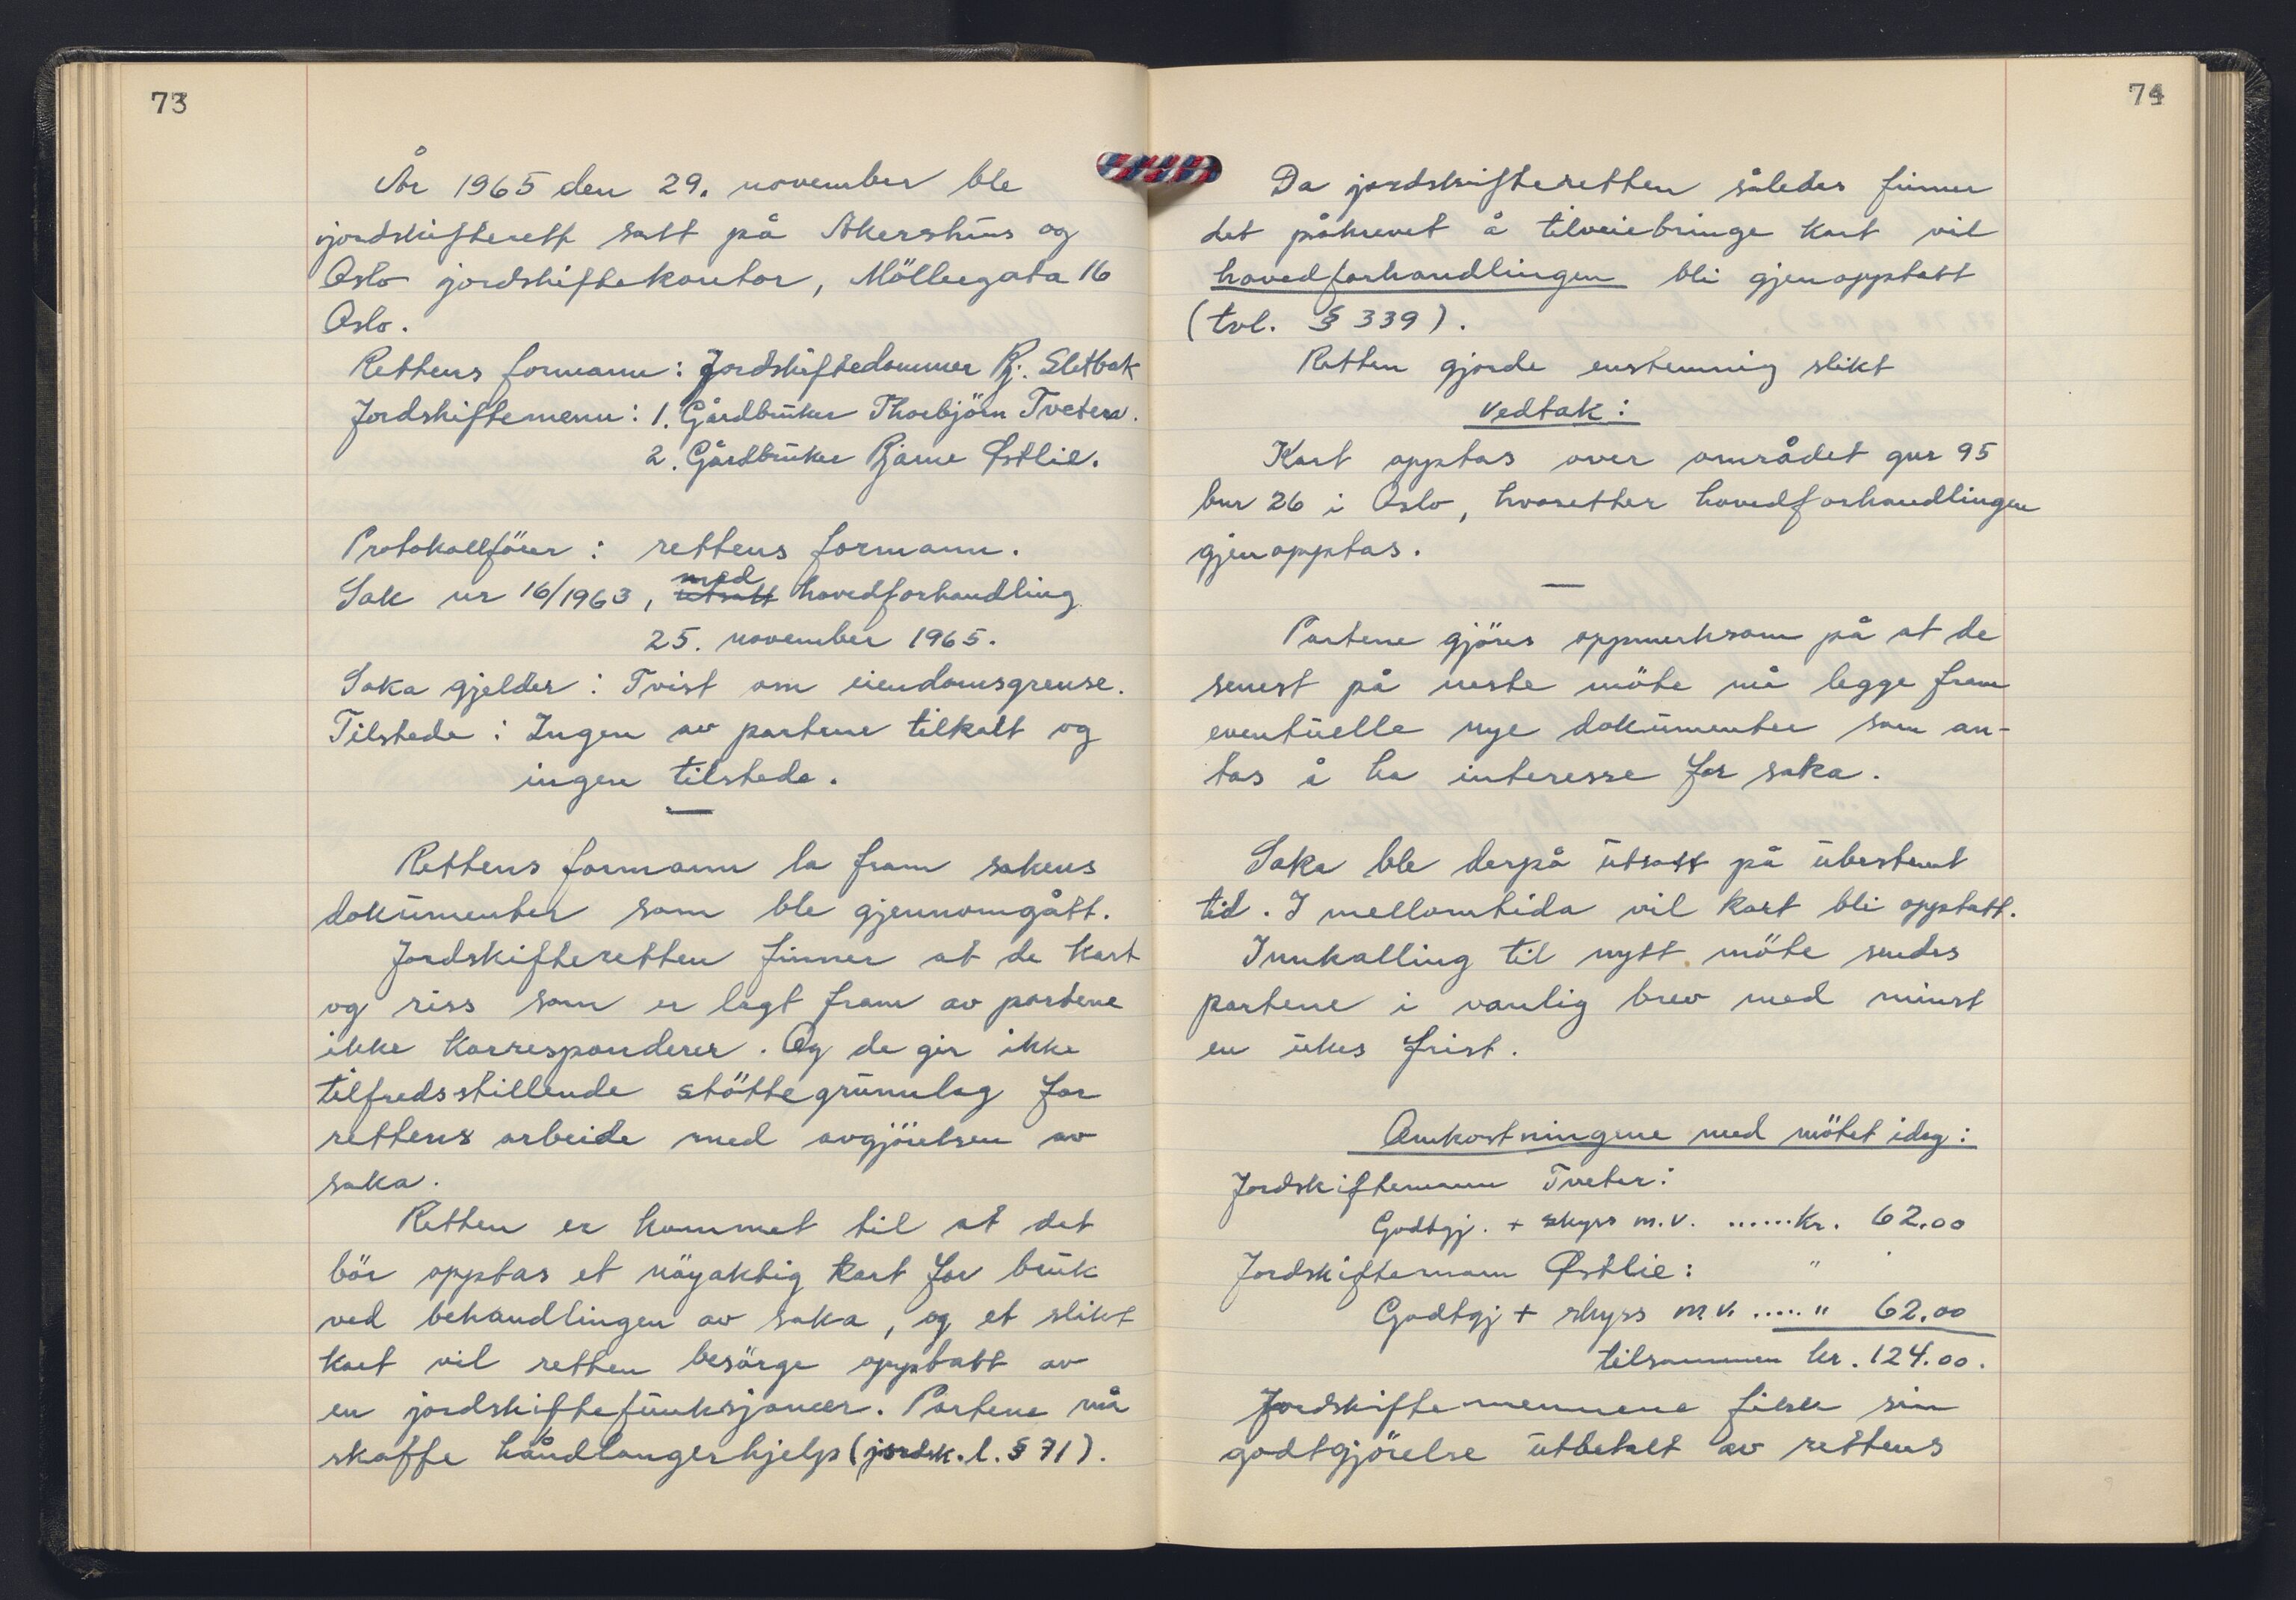 73
År 1965 den 29. november ble
jordskifterett satt på Akershus og
Oslo jordskiftekontor, Möllergata 16
Oslo.
Rettens formann: Jordskiftedommer Bj. Sletbak
Jordskiftemenn: 1. Gårdbruker Thorbjörn Tveter.
2. Gårdbruker Bjarne Østlie.
Protokollförer: rettens formann.
Sak nr 16/1963, med hovedforhandling
25. november 1965.
Saka gjelder: Tvist om eiendomsgrense.
Tilstede: Ingen av partene tilkalt og
ingen tilstede.
Rettens formann la fram sakens
dokumenter som ble gjennomgått.
Jordskifteretten finner at de kart
og riss som er lagt fram av partene
ikke korresponderer. Og de gir ikke
tilfredsstillende støttegrunnlag for
rettens arbeide med avgjörelsen av
saka.
Retten er kommet til at det
bör opptas et nöyaktig kart for bruk
ved behandlingen av saka, og et slikt
kart vil retten besörge opptatt av
en jordskiftefunksjonær. Partene må
skaffe håndlangerhjelp (jordsk.l. § 71).
74
Da jordskifteretten således finner
det påkrevet å tilveiebringe kart vil
hovedforhandlingen bli gjenopptatt
(tvl. § 339).
Retten gjorde enstemmig slikt
vedtak:
Kart opptas over området gnr 95
bnr 26 i Oslo, hvoretter hovedforhandlingen
gjenopptas.
Partene gjöres oppmerksom på at de
senest på neste möte må legge fram
eventuelle nye dokumenter som an-
tas å ha interesse for saka.
Saka ble derpå utsatt på ubestemt
tid. I mellomtida vil kart bli opptatt.
Innkalling til nytt möte sendes
partene i vanlig brev med minst
en ukes frist.
Omkostningene med mötet idag:
Jordskiftemann Tveter:
Godtgj. + skyss m.v. ......kr. 62.00
Jordskiftemann Østlie: "
Godtgj + skyss m.v. ..... " 62.00
tilsammen kr. 124.00.
Jordskiftemennene fikk sin
godtgjörelse utbetalt av rettens